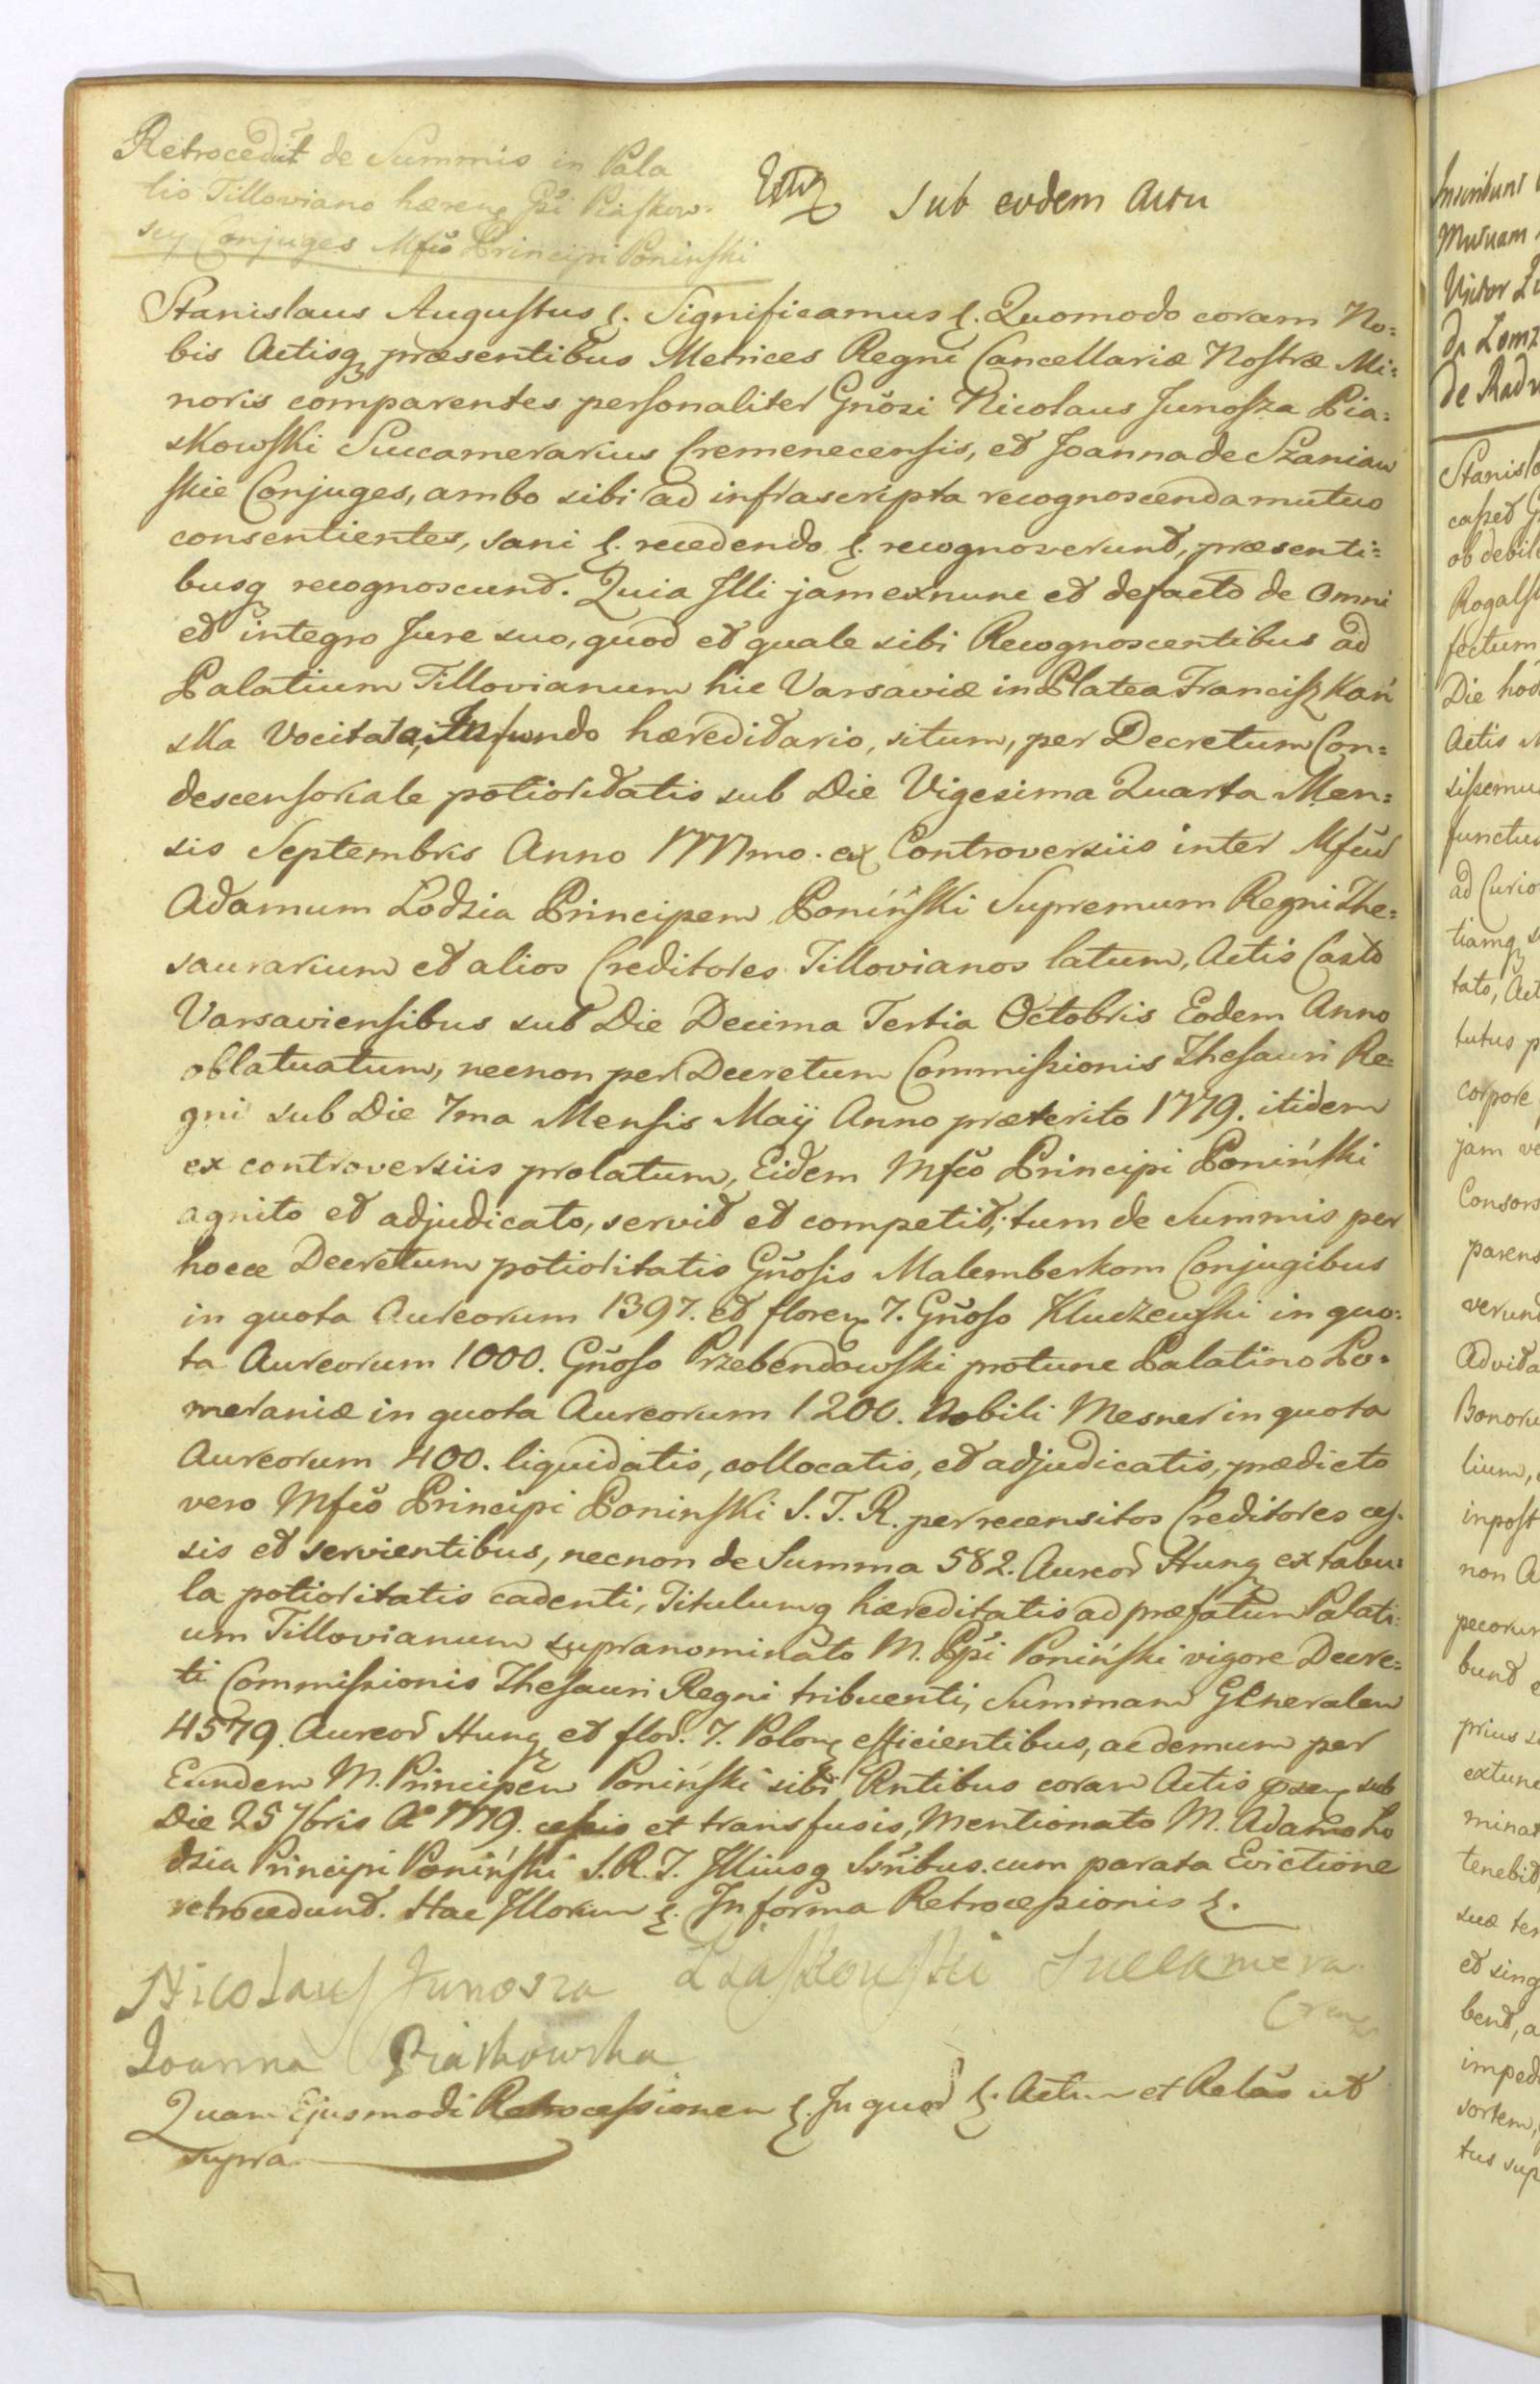 Retrocedūt de Summis in Pala
tio Tilloviano hæren Gsi Piaskow-
scy Conjuges Mfco Principi Poninski
sub eodem Actu
Stanislaus Augustus &. Significamus &. Quomodo coram No=
bis Actisq præsentibus Metrices Regni Cancellariæ Nostræ Mi=
noris comparentes personaliter Gnōsi Nicolaus Junosza Pia=
skowski Succamerarius Cremenecensis, et Joanna de Szaniaw
skie Conjuges, ambo sibi ad infrascripta recognoscenda mutuo
consentientes, sani &. recedendo &. recognoverunt, præsenti=
busq recognoscunt. Quia Illi jam exnunc et defacto de omni
et integro Jure suo, quod et quale sibi Recognoscentibus ad
Palatium Tillovianum hic Varsaviæ in Platea Franciszkań
ska Vocitata, In fundo hæreditario, situm, per Decretum Con=
descensoriale potioritatis sub Die Vigesima Quarta Men=
sis Septembris Anno 1777mo. ex Controversiis inter Mfcū
Adamum Lodzia Principem Poniński Supremum Regni The=
saurarium et alios Creditores Tillovianos latum, Actis Casto
Varsaviensibus sub Die Decima Tertia Octobris Eodem Anno
oblatuatum, necnon per Decretum Commissionis Thesauri Re=
gni sub Die 7ma Mensis Maij Anno præterito 1779. itidem
ex controversiis prolatum, Eidem Mfco Principi Poniński
agnito et adjudicato, servit et competit, tum de Summis per
hocce Decretum potioritatis Gnōsis Malemberkom Conjugibus
in quota Aureorum 1397. et floren 7. Gnōso Kluczewski in quo=
ta Aureorum 1000. Gnōso Przebendowski protunc Palatino Po=
meraniæ in quota Aureorum 1200. Nobili Mesner in quota
Aureorum 400. liquidatis, collocatis, et adjudicatis, prædicto
vero Mfco Principi Poninski S. T. R. per recensitos Creditores ces=
sis et servientibus, necnon de Summa 582. Aureor Hung ex tabu=
la potioritatis cadenti, Titulumq hæreditatis ad præfatum Palati=
um Tillovianum supranominato M. Ppi Poniński vigore Decre=
ti Commissionis Thesauri Regni tribuenti, Summam Generalem
4579. Aureor Hung et flor. 7. Polon efficientibus, ac demum per
Eundem M. Principem Poniński sibi Rntibus coram Actis præn sub
Die 25 7bris Ao 1779. cessis et transfusis, Mentionato M. Adamo Lo
dzia Principi Poniński S. R. T. Illiusq Ssribus. cum parata Evictione
retrocedunt. Hac Illorum &. In forma Retrocessionis &.
Nicolaus Junosza Piaskowski Succamera.
Joanna Piaskowska
Quam Ejusmodi Retrocessionem &. In quor &. Actum et Relāo ut
supra.